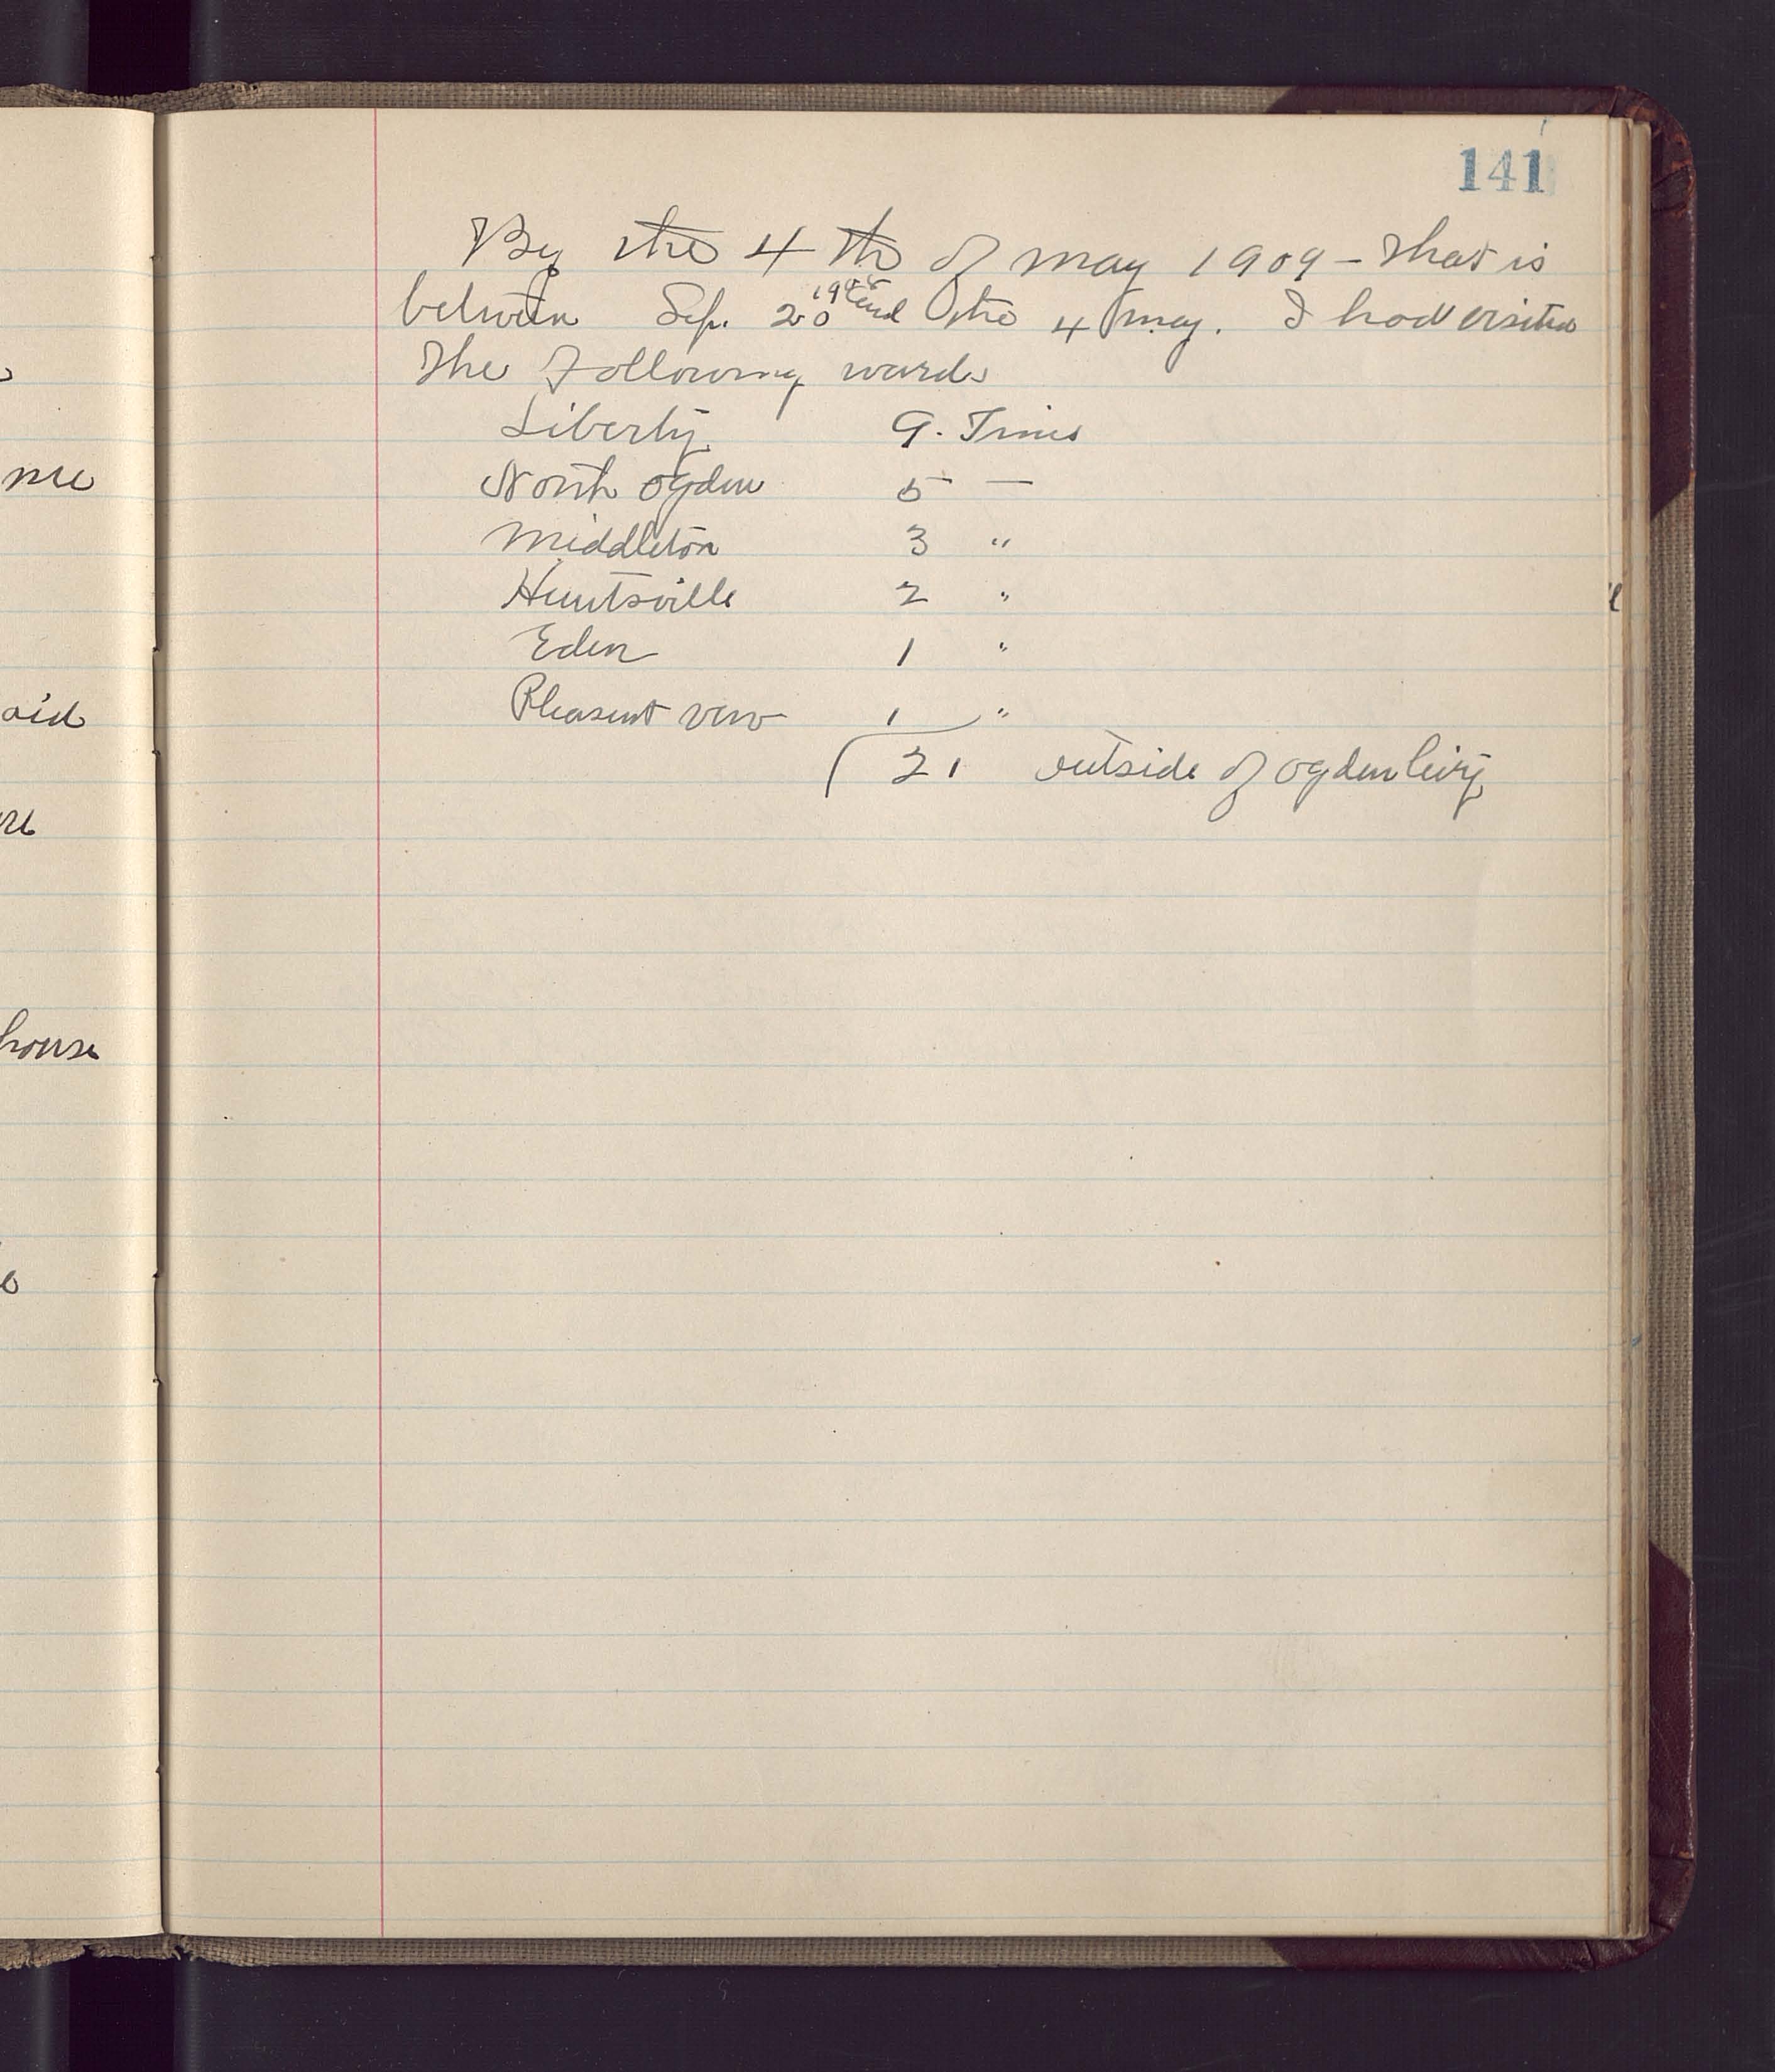 141
By the 4 th of may 1909 - That is
between Sep. 20 1908 and the 4 may. I had visited
The Following wards
Liberty 9. Times
North Ogden 5 —
Middleton 3 "
Huntsville 2 "
Eden 1 "
Pleasent view 1 "
21 outside of Ogden City
me
aid
house